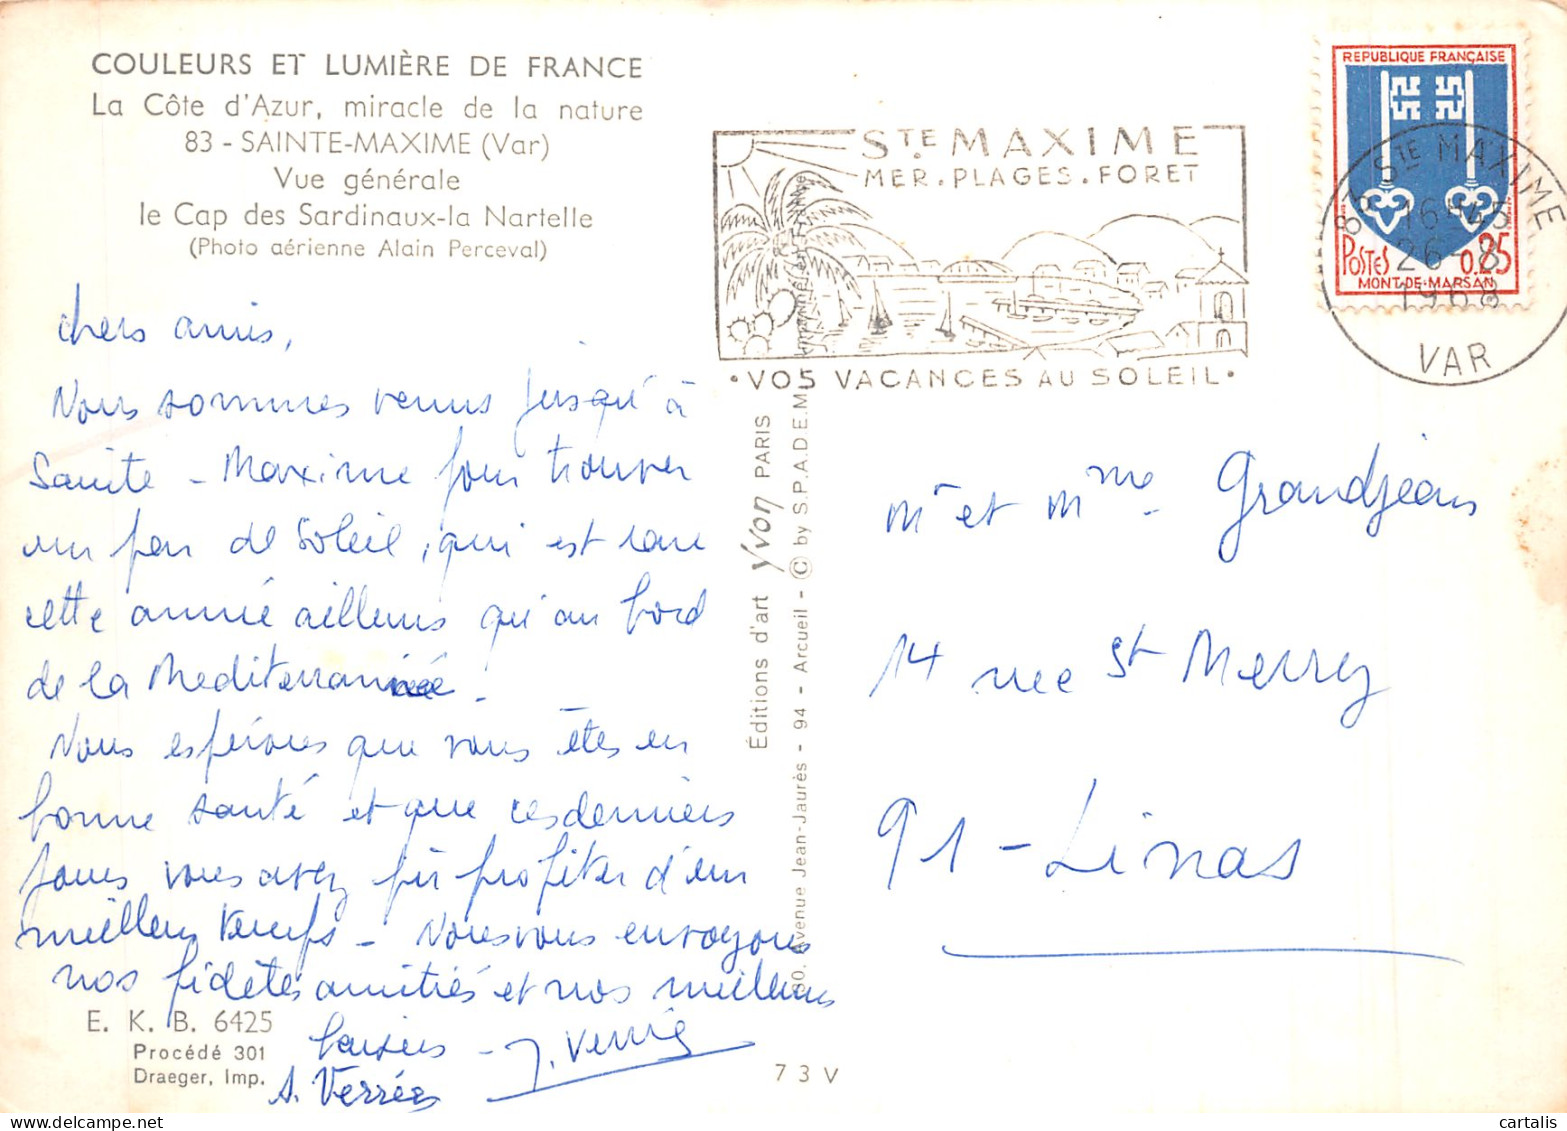 COULEURS ET LUMIÈRE DE FRANCE
La Côte d'Azur, miracle de la nature
83 - SAINTE-MAXIME (Var)
Vue générale
le Cap des Sardinaux-la Nartelle
(Photo aérienne Alain Perceval)
chers amis,
Nous sommes venus jusqu'à
Sainte - Maxime pour trouver
un peu de soleil, qui est rare
cette année ailleurs qu'au bord
de la Mediterrannée -
Nous espérons que vous êtes en
bonne santé et que ces derniers
jours vous avez pû profiter d'un
meilleur temps - Nous vous envoyons
nos fidèles amitiés et nos meilleurs
baisers -
A. Verrée
E. K. B. 6425
Procédé 301
Draeger, Imp.
73 V
Éditions d'art Yvon PARIS
80, Avenue Jean-Jaurès - 94 - Arcueil - © by S.P.A.D.E.M.
Imprimé en FRANCE
STE MAXIME
MER. PLAGES. FORET
• VOS VACANCES AU SOLEIL •
REPUBLIQUE FRANÇAISE
POSTES 0,25
MONT-DE-MARSAN
83 STE MAXIME
16H45
26-8
1968
VAR
Mr et Mme Grandjean
14 rue St Merry
91 - Linas
cartalis